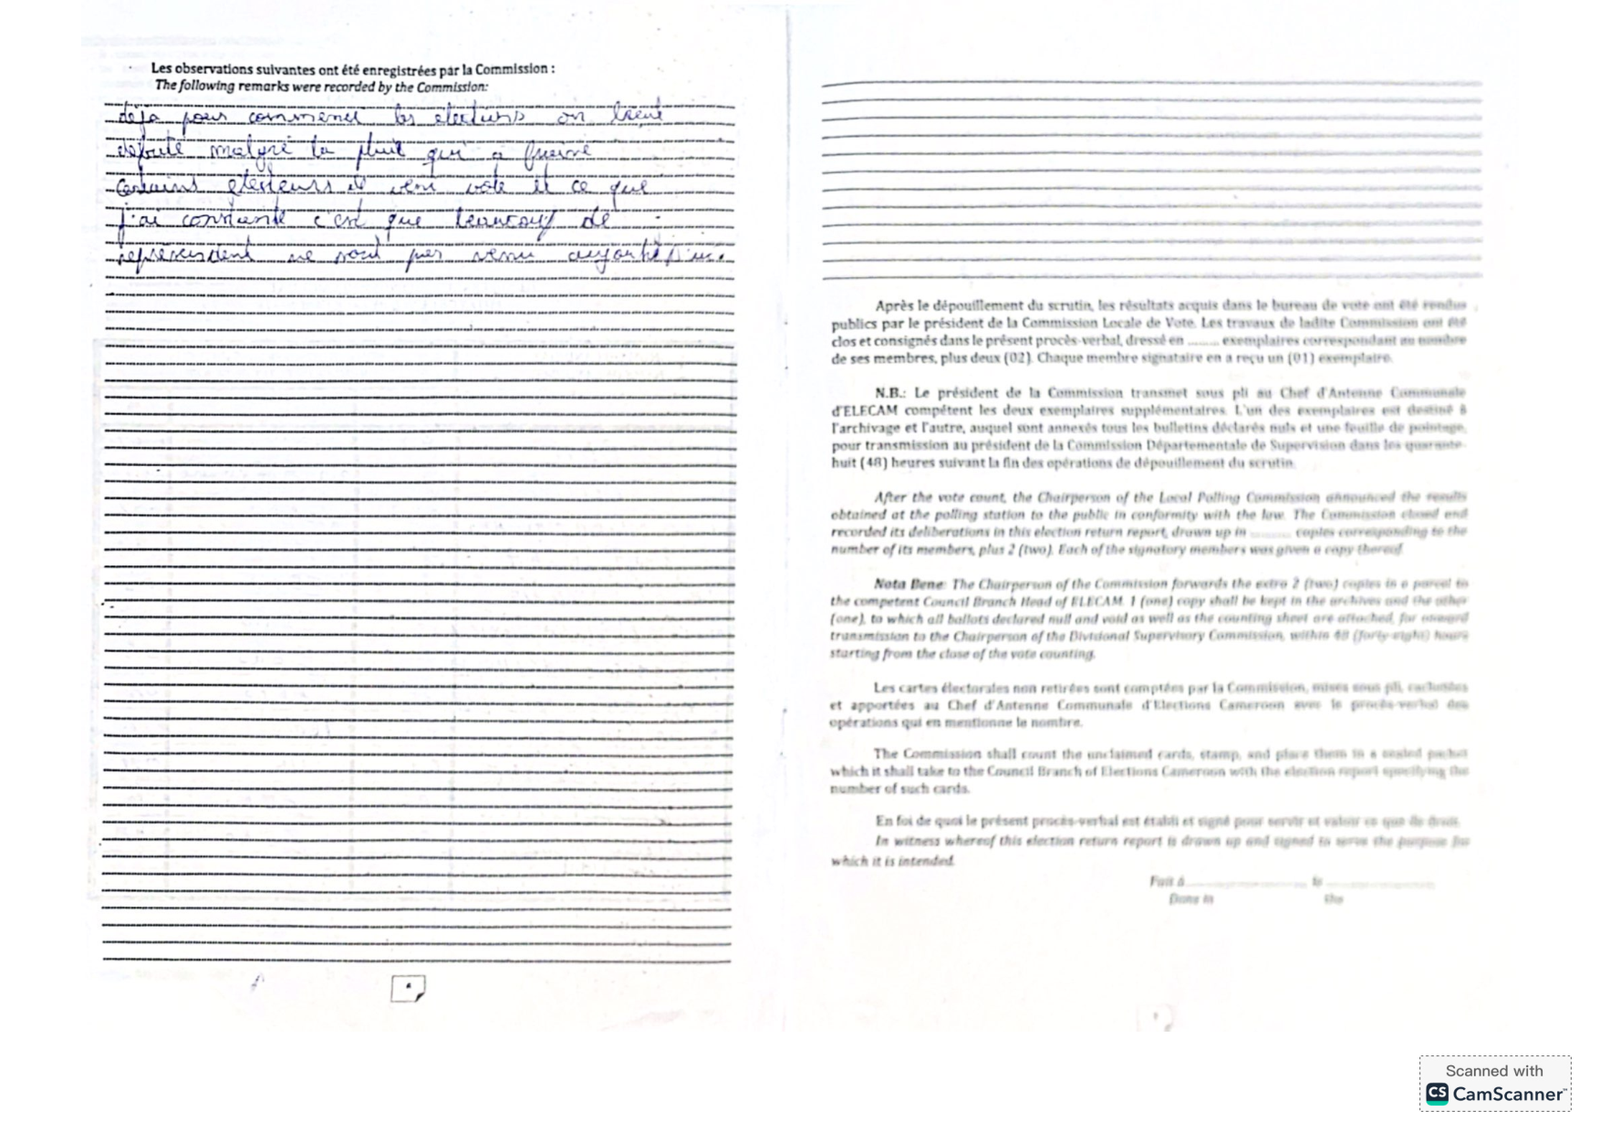 Les observations suivantes ont été enregistrées par la Commission :
The following remarks were recorded by the Commission:
déja pour commencer les electeurs on
debuté malgré la pluit qui a
certains electeurs vote et ce que
j'ai c'est que beaucoup de
ne sont pas venu
Après le dépouillement du scrutin, les résultats acquis dans le bureau de vote ont été rendus
publics par le président de la Commission Locale de Vote. Les travaux de ladite Commission ont été
clos et consignés dans le présent procès-verbal, dressé en ......... exemplaires correspondant au nombre
de ses membres, plus deux (02). Chaque membre signataire en a reçu un (01) exemplaire.
N.B.: Le président de la Commission transmet sous pli au Chef d'Antenne Communale
d'ELECAM compétent les deux exemplaires supplémentaires. L'un des exemplaires est destiné à
l'archivage et l'autre, auquel sont annexés tous les bulletins déclarés nuls et une feuille de pointage,
pour transmission au président de la Commission Départementale de Supervision dans les quarante-
huit (48) heures suivant la fin des opérations de dépouillement du scrutin.
After the vote count, the Chairperson of the Local Polling Commission announced the results
obtained at the polling station to the public in conformity with the law. The Commission closed and
recorded its deliberations in this election return report, drawn up in ............ copies corresponding to the
number of its members, plus 2 (two). Each of the signatory members was given a copy thereof.
Nota Bene: The Chairperson of the Commission forwards the extra 2 (two) copies in a parcel to
the competent Council Branch Head of ELECAM. 1 (one) copy shall be kept in the archives and the other
(one), to which all ballots declared null and void as well as the counting sheet are attached, for onward
transmission to the Chairperson of the Divisional Supervisory Commission, within 48 (forty-eight) hours
starting from the close of the vote counting.
Les cartes électorales non retirées sont comptées par la Commission, mises sous pli, cachetées
et apportées au Chef d'Antenne Communale d'Elections Cameroon avec le procès-verbal des
opérations qui en mentionne le nombre.
The Commission shall count the unclaimed cards, stamp, and place them in a sealed packet
which it shall take to the Council Branch of Elections Cameroon with the election report specifying the
number of such cards.
En foi de quoi le présent procès-verbal est établi et signé pour servir et valoir ce que de droit.
In witness whereof this election return report is drawn up and signed to serve the purpose for
which it is intended.
Fait à .............................., le ..........................
Done in the
Scanned with
CS CamScanner